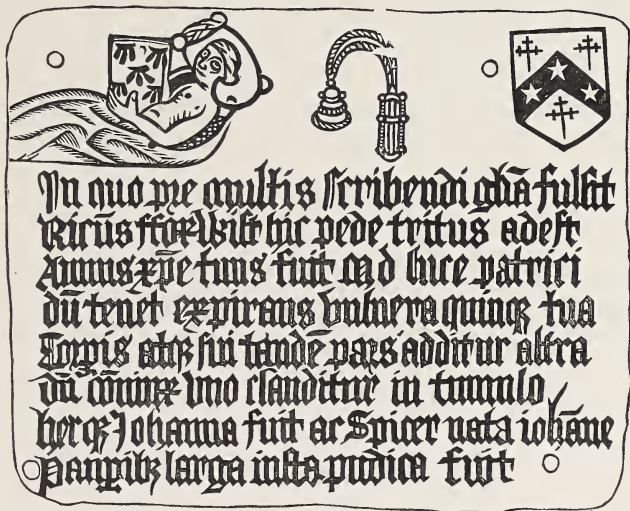 In quo pre multis scribendi gl̄ia fulsit
Ricūs ffoxwist hic pede tritus adest
Annus xp̄e tuus fuit M d luce patrici
dū tenet expirans vulnera quinqꝫ tua
Corpis atqꝫ sui tandē pars additur altra
dū cōiunx uno clauditur in tumulo
hecqꝫ Johanna fuit ac Spicer nata iohāne
Pauꝑibꝫ larga iusta pudica fuit